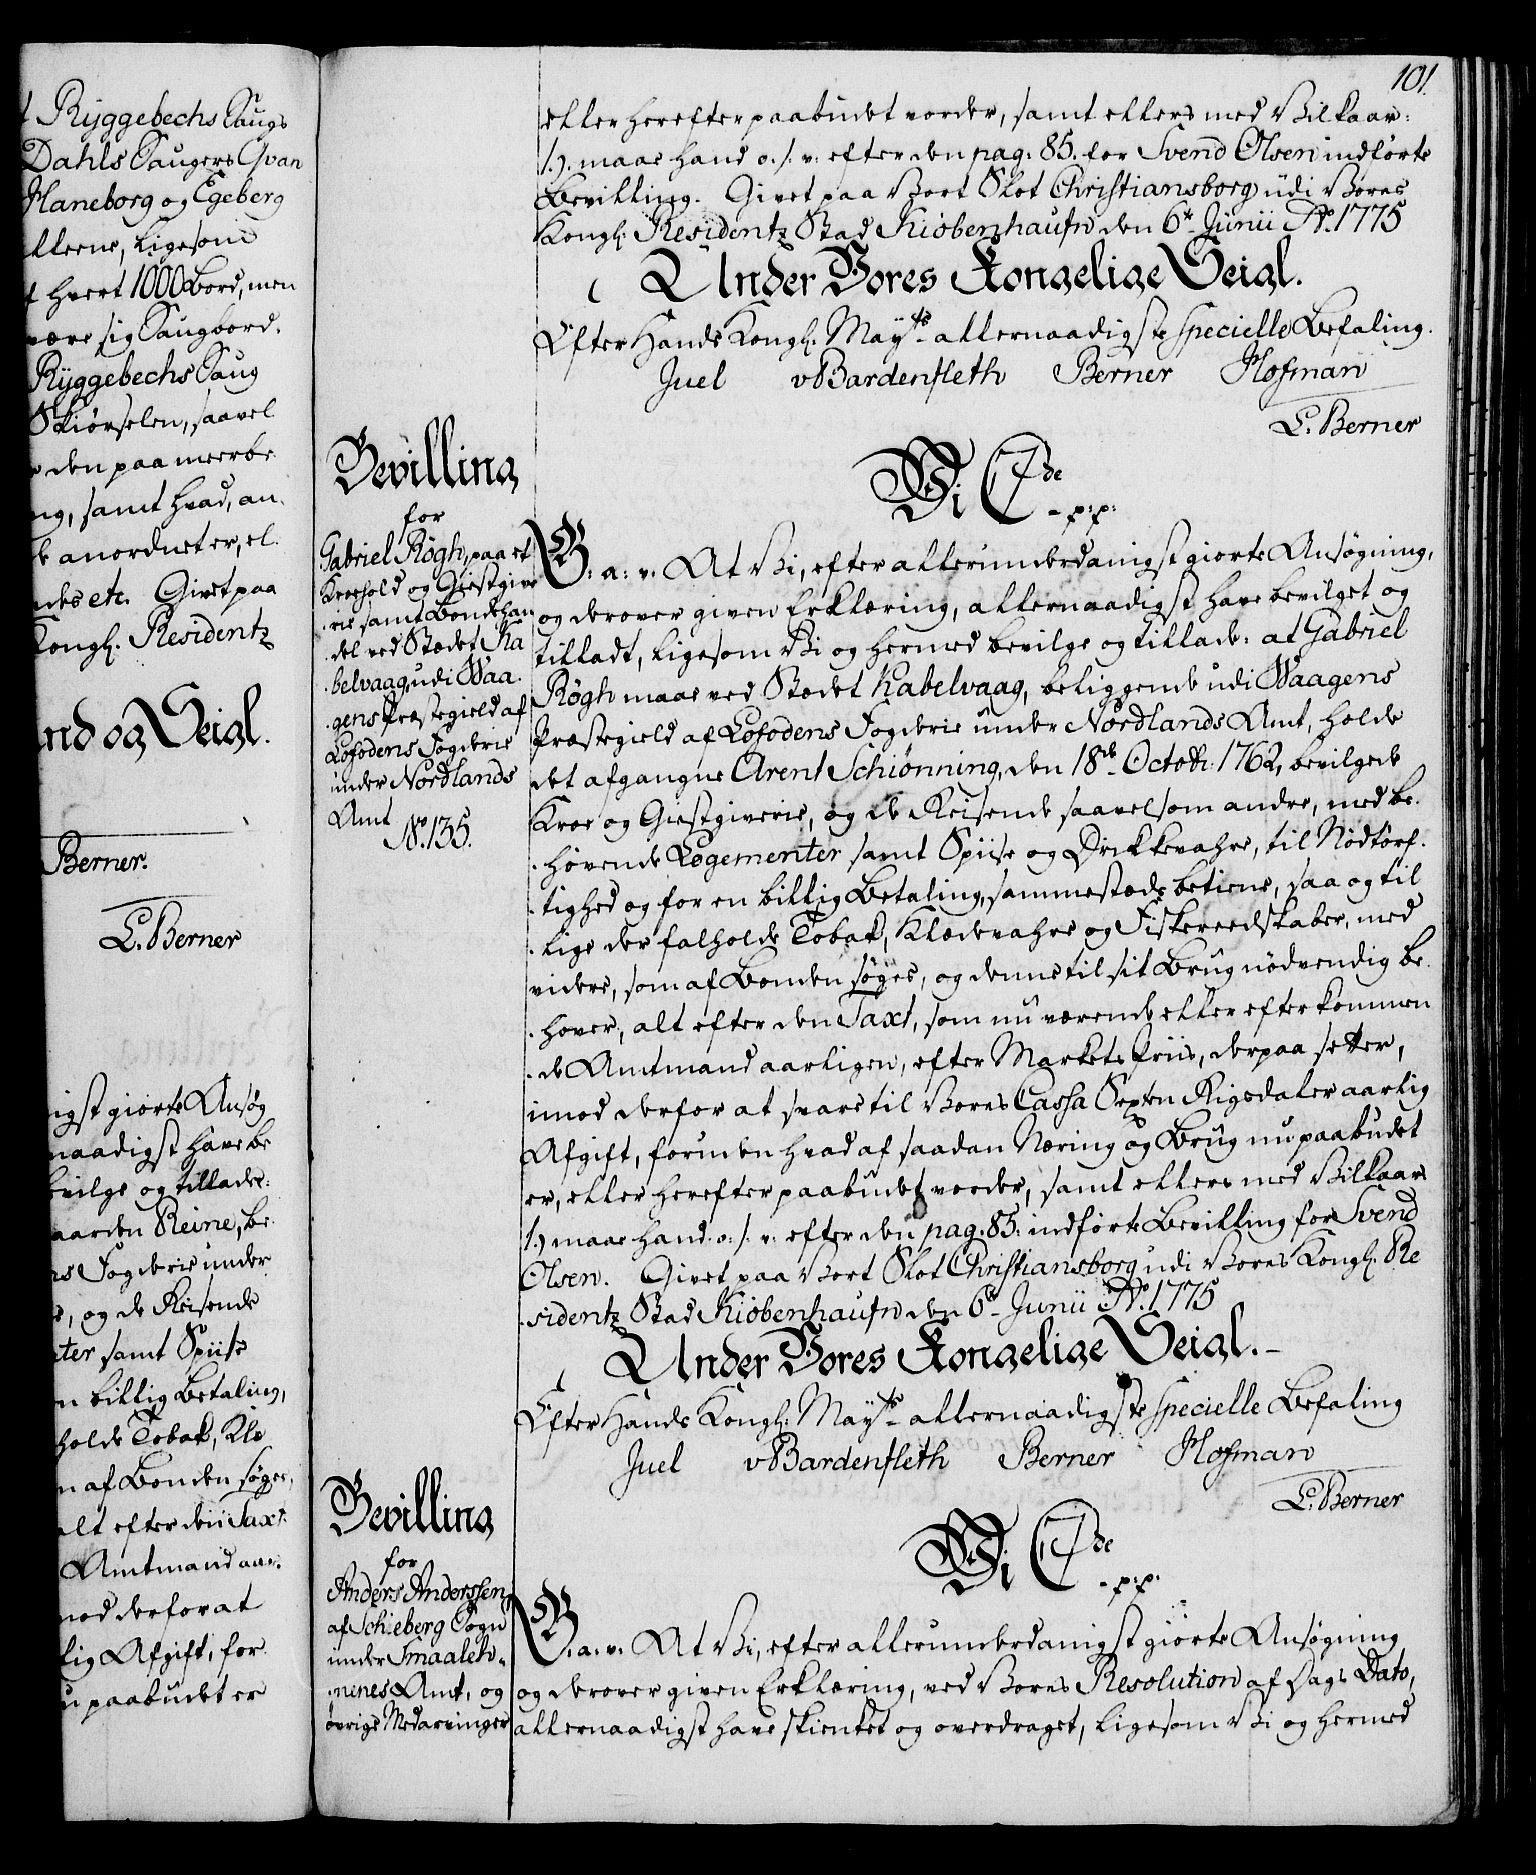 t Ryggebechs Saugs
Dahls Saugers Qvan
Haneborg og Egeberg
llerne, ligesom
f hvert 1000 Bord, men
være sig Saugbord.
Ryggebechs Saug
Skiørselen, saavel
den paa meerbe
ng, samt hvad, an.
anordnet er, el.
ndes etc. Givet paa
Kongl. Residentz
nd og Seigl.
Berner.
L. Berner
nigst giorte Ansøg
naadigst have be
evilge og tillade:
aarden Reine, be
ns Fogderie under
, og de Reisende
nter samt Spiise
n billig Betaling,
holde Tobak, Klæ
n af Bonden søges,
alt efter den Taxt
Amtmand aar.
mod derfor at
lig Afgift, for.
u paabudet er
101.
eller herefter paabudet vorder, samt ellers med Vilkaar:
/:). maae hand o. s. v. efter den pag. 85. for Svend Olsen indførte
Bevilling. Givet paa Vort Slot Christiansborg udi Vores
Kongl. Residentz Stad Kiøbenhaufn den 6te Junii Ao. 1775
Under Vores Kongelige Seigl.
Efter Hands Kongl. Mayts allernaadigste specielle Befaling.
Juel vBardenfleth Berner Hofman
L. Berner
Bevilling
for
Gabriel Røgh, paa et
Kroehold og Giestgive
rie samt Bondehan
del ved Stædet Ka
belvaag, udi Waa.
gens Præstegield af
Lofodens Fogderie
under Nordlands
Amt
No. 135.
Vi C 7de
p:p:
G: a: v. At Vi, efter allerunderdanigst giorte Ansøgning,
og derover given Erklæring, allernaadigst have bevilget og
tilladt, ligesom Vi og hermed bevilge og tillade: at Gabriel
Røgh maae ved Stædet Kabelvaag, beliggende udi Waagens
Præstegield af Lofodens Fogderie under Nordlands Amt, holde
det afgangne Arent Schiønning, den 18de Octobr: 1762, bevilgede
Kroe og Giestgiverie, og de Reisende saavelsom andre, med be.
høvende Logementer samt Spiise og Drikkevahre, til Nødtørf.
tighed og for en billig Betaling, sammestæds betiene, saa og til
lige der falholde Tobak, Klædevahre og Fiskereedskaber, med
videre, som af Bonden søges, og denne til sit Brug nødvendig be.
høver, alt efter den Taxt, som nu værende eller efterkommen
de Amtmand aarligen, efter Markets Priis, derpaa setter,
imod derfor at svare til Vores Cassa Sexten Rigsdaler aarlig
Afgift, foruden hvad af saadan Næring og Brug nu paabudet
er, eller herefter paabudet vorder, samt ellers med Vilkaar
/:) maae hand o: s. v: efter den pag. 85: indførte Bevilling for Svend
Olsen. Givet paa Vort Slot Christiansborg udi Vores Kongl. Re
sidentz Stad Kiøbenhaufn den 6te Junii Ao. 1775
Under Vores Kongelige Seigl.
Efter Hands Kongl. Mayts allernaadigste specielle Befaling
Juel vBardenfleth Berner Hofman
L. Berner
Bevilling
for
Anders Anderssen
af Schieberg Sogn
under Smaaleh
nenes Amt, og
øvrige Medarvinger
Vi C 7de
p:p:
G. a. v. At Vi, efter allerunderdanigst giorte Ansøgning
og derover given Erklæring, ved Vores Resolution af Dags Dato,
allernaadigst have skienket og overdraget, ligesom Vi og hermed